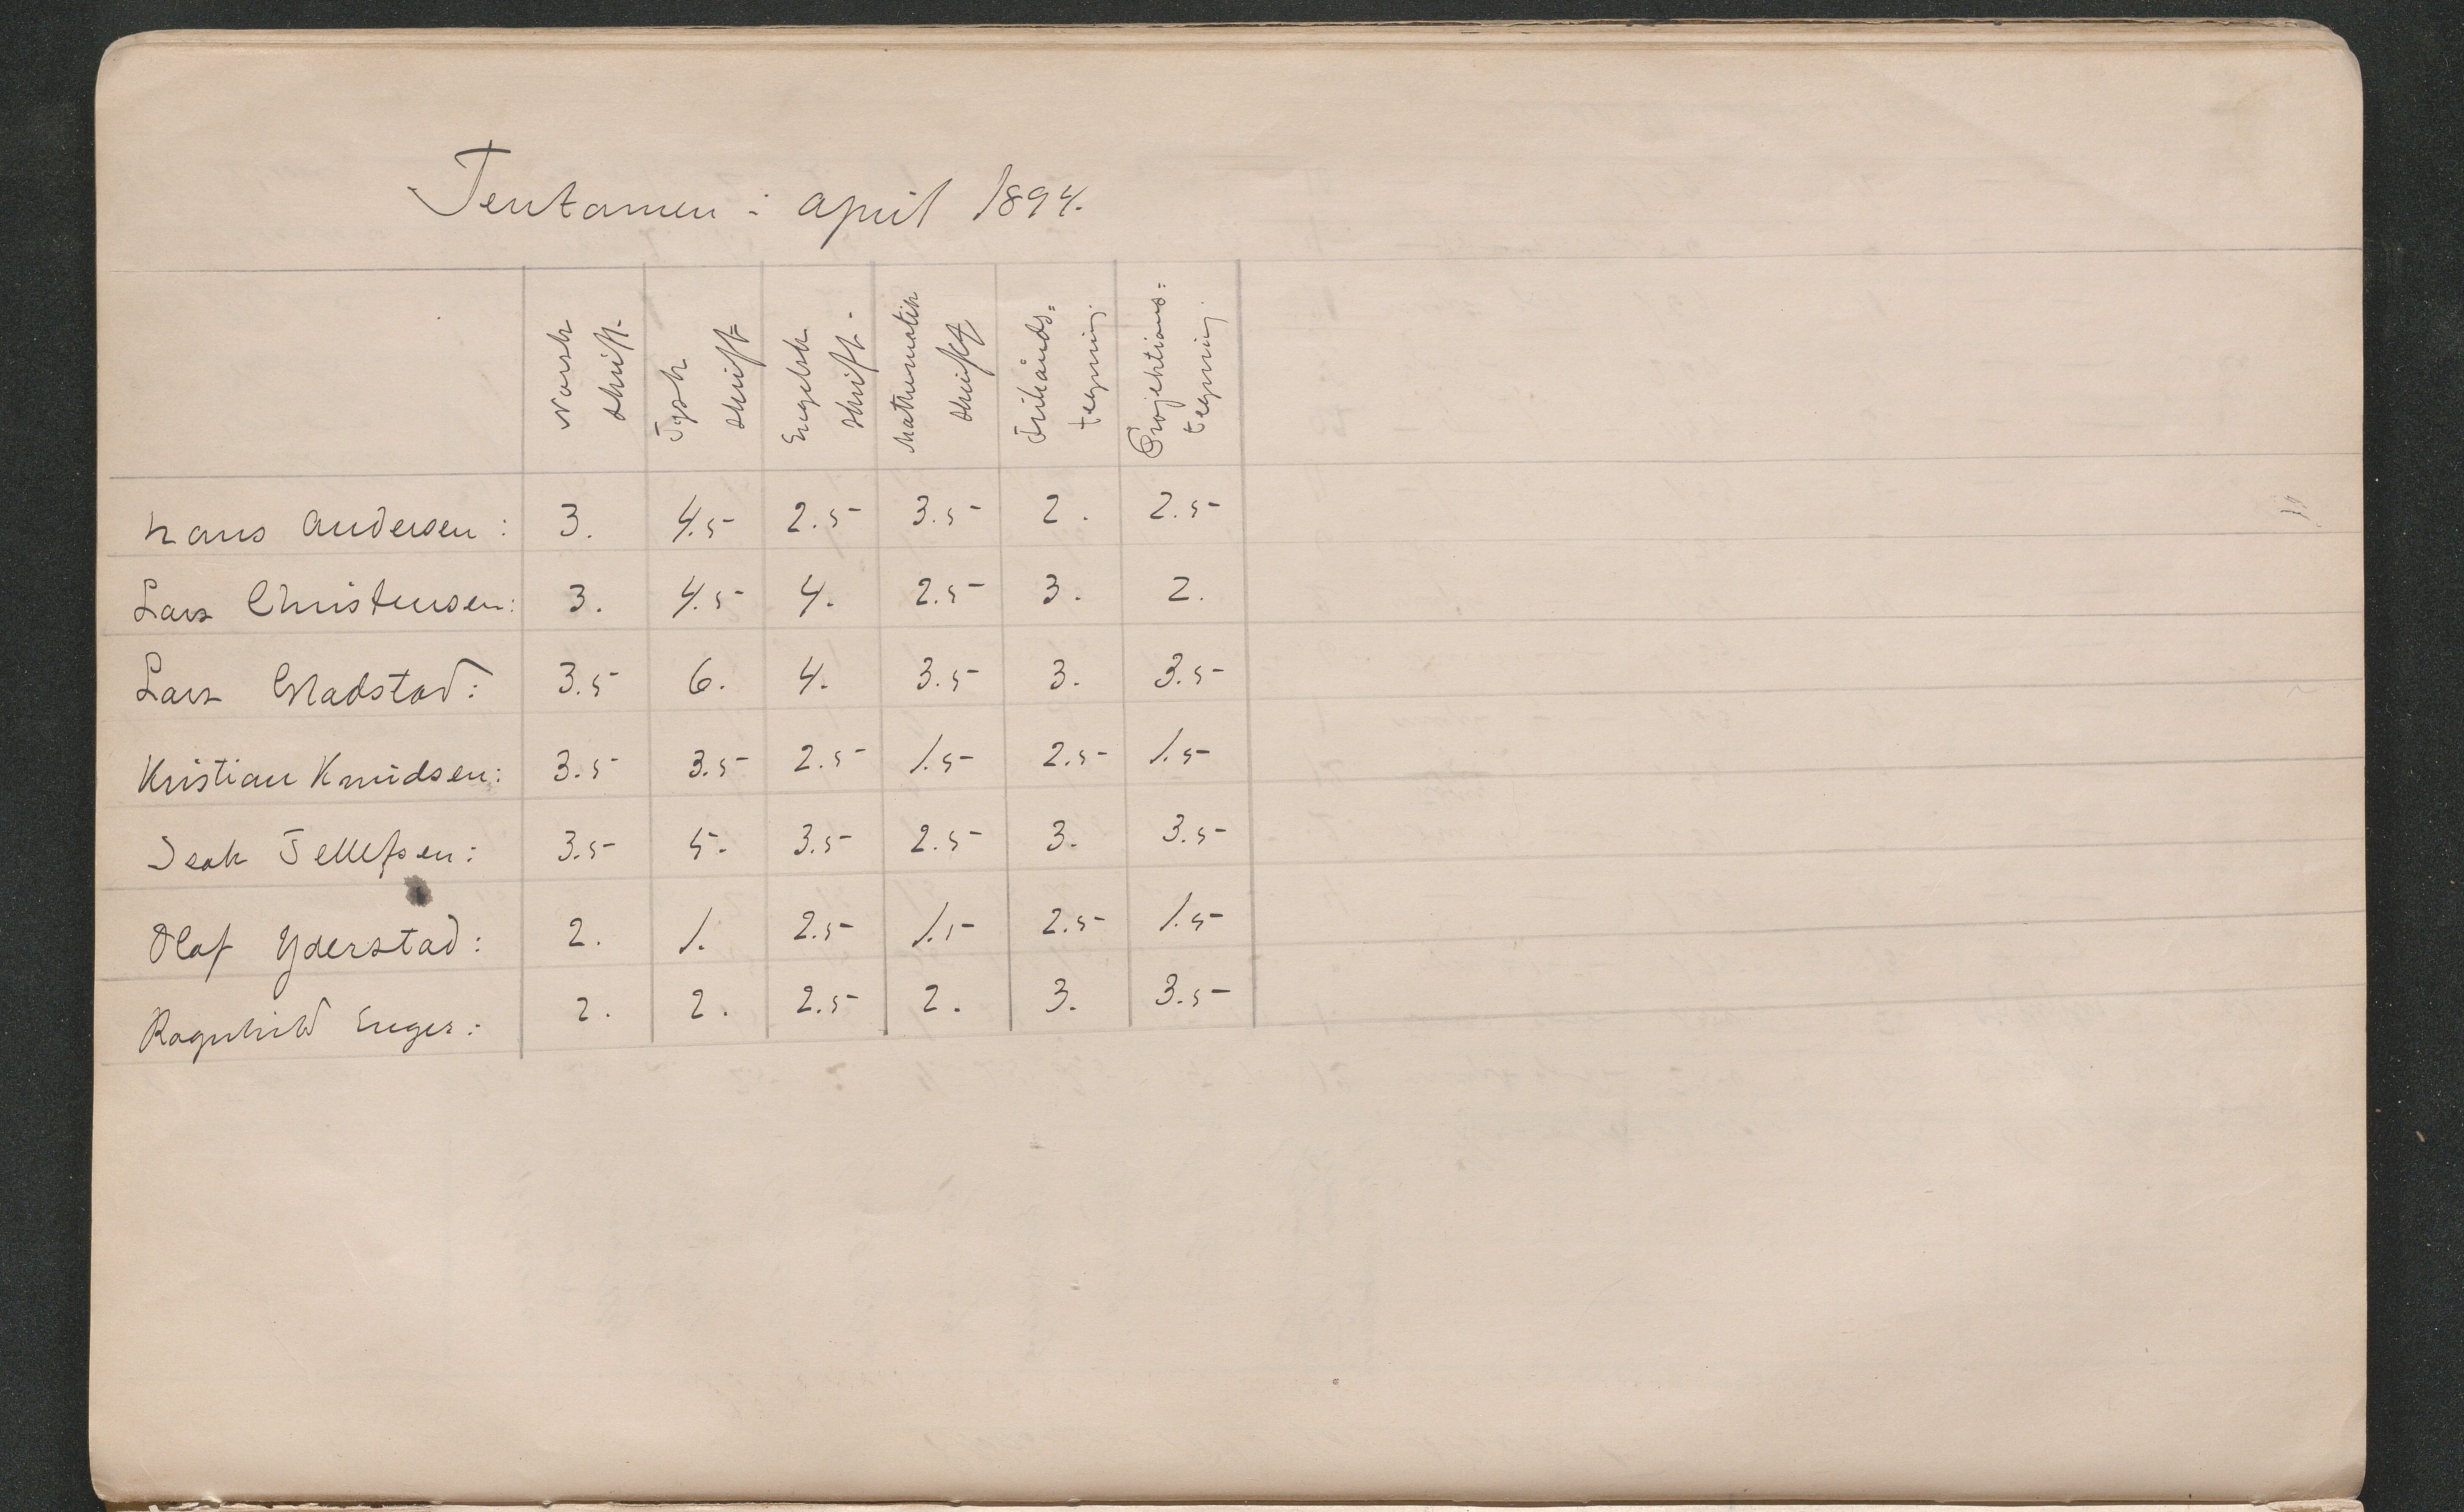 Tentamen i april 1894.
Norsk skriftl. Tysk skriftl. Engelsk skriftl. Mathematik skriftl. Frihånds= tegning. Projektions= tegning.
Hans Andersen: 3. 4.5 2.5 3.5 2. 2.5
Lars Christensen: 3. 4.5 4. 2.5 3. 2.
Lars Gladstad: 3.5 6. 4. 3.5 3. 3.5
Kristian Knudsen: 3.5 3.5 2.5 1.5 2.5 1.5
Isak Tellefsen: 3.5 5. 3.5 2.5 3. 3.5
Olaf Yderstad: 2. 1. 2.5 1.5 2.5 1.5
Ragnhild Enger: 2. 2. 2.5 2. 3. 3.5